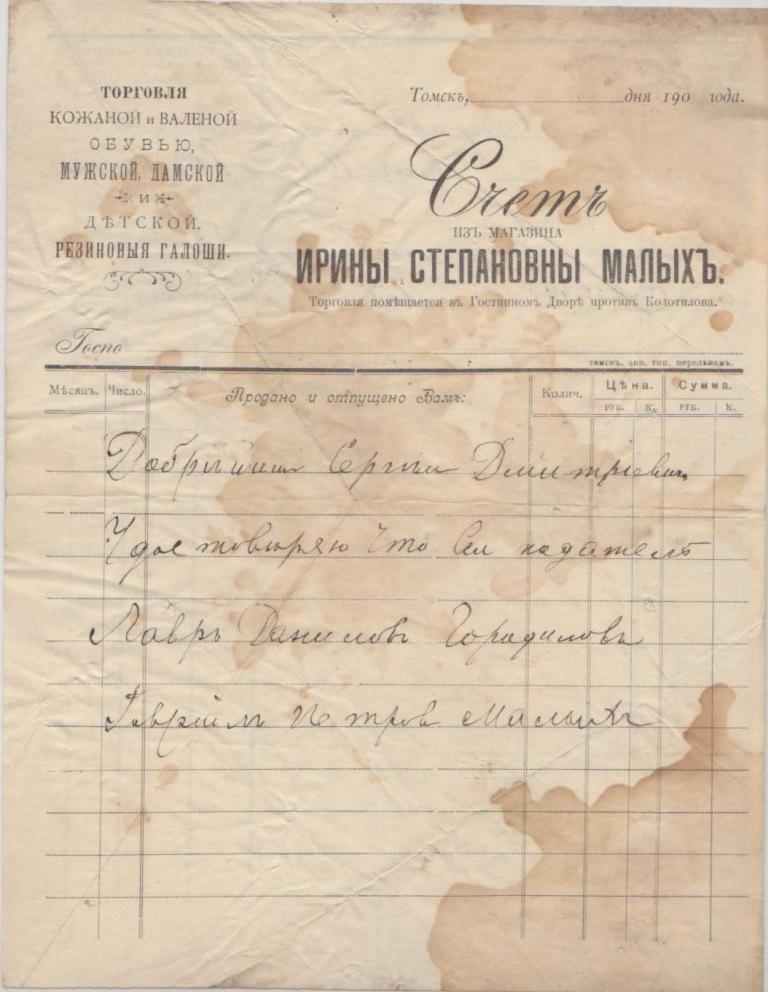 ТОРГОВЛЯ
КОЖАНОЙ и ВАЛЕНОЙ
ОБУВЬЮ,
МУЖСКОЙ, ДАМСКОЙ
И
ДѢТСКОЙ.
РЕЗИНОВЫЯ ГАЛОШИ.
Томскъ, дня 190 года.
Счетъ
ИЗЪ МАГАЗИНА
ИРИНЫ СТЕПАНОВНЫ МАЛЫХЪ.
Торговля помѣщается въ Гостинномъ Дворѣ противъ Колотилова.
Госпо
томскъ, аки. тип. перельман.
Мѣсяцъ. Число. Продано и отпущено Вамъ: Колич. Цѣна. Сумма.
РУБ. К. РУБ. К.
Сергеи Дмитріевич
Удостовѣряю что сей податель
Лавръ Даниловъ Городиловъ
Гавріилъ Петров Малыхъ